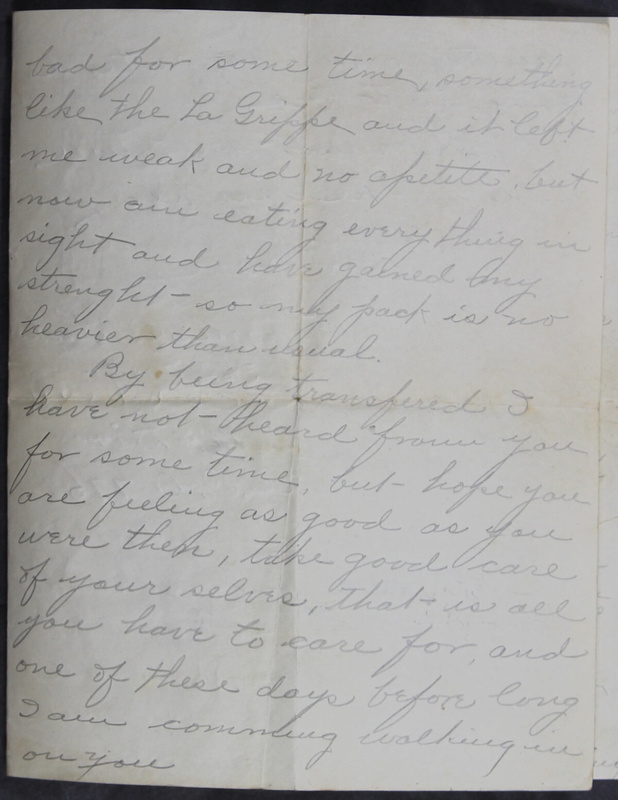 bad for some time, something
like the La Grippe and it left
me weak and no apetite, but
now am eating every thing in
sight and have gained my
strenght - so my pack is no
heavier than usual.
By being transfered I
have not heard from you
for some time, but hope you
are feeling as good as you
were then, take good care
of your selves, that is all
you have to care for, and
one of these days before long
I am comming walking in
on you